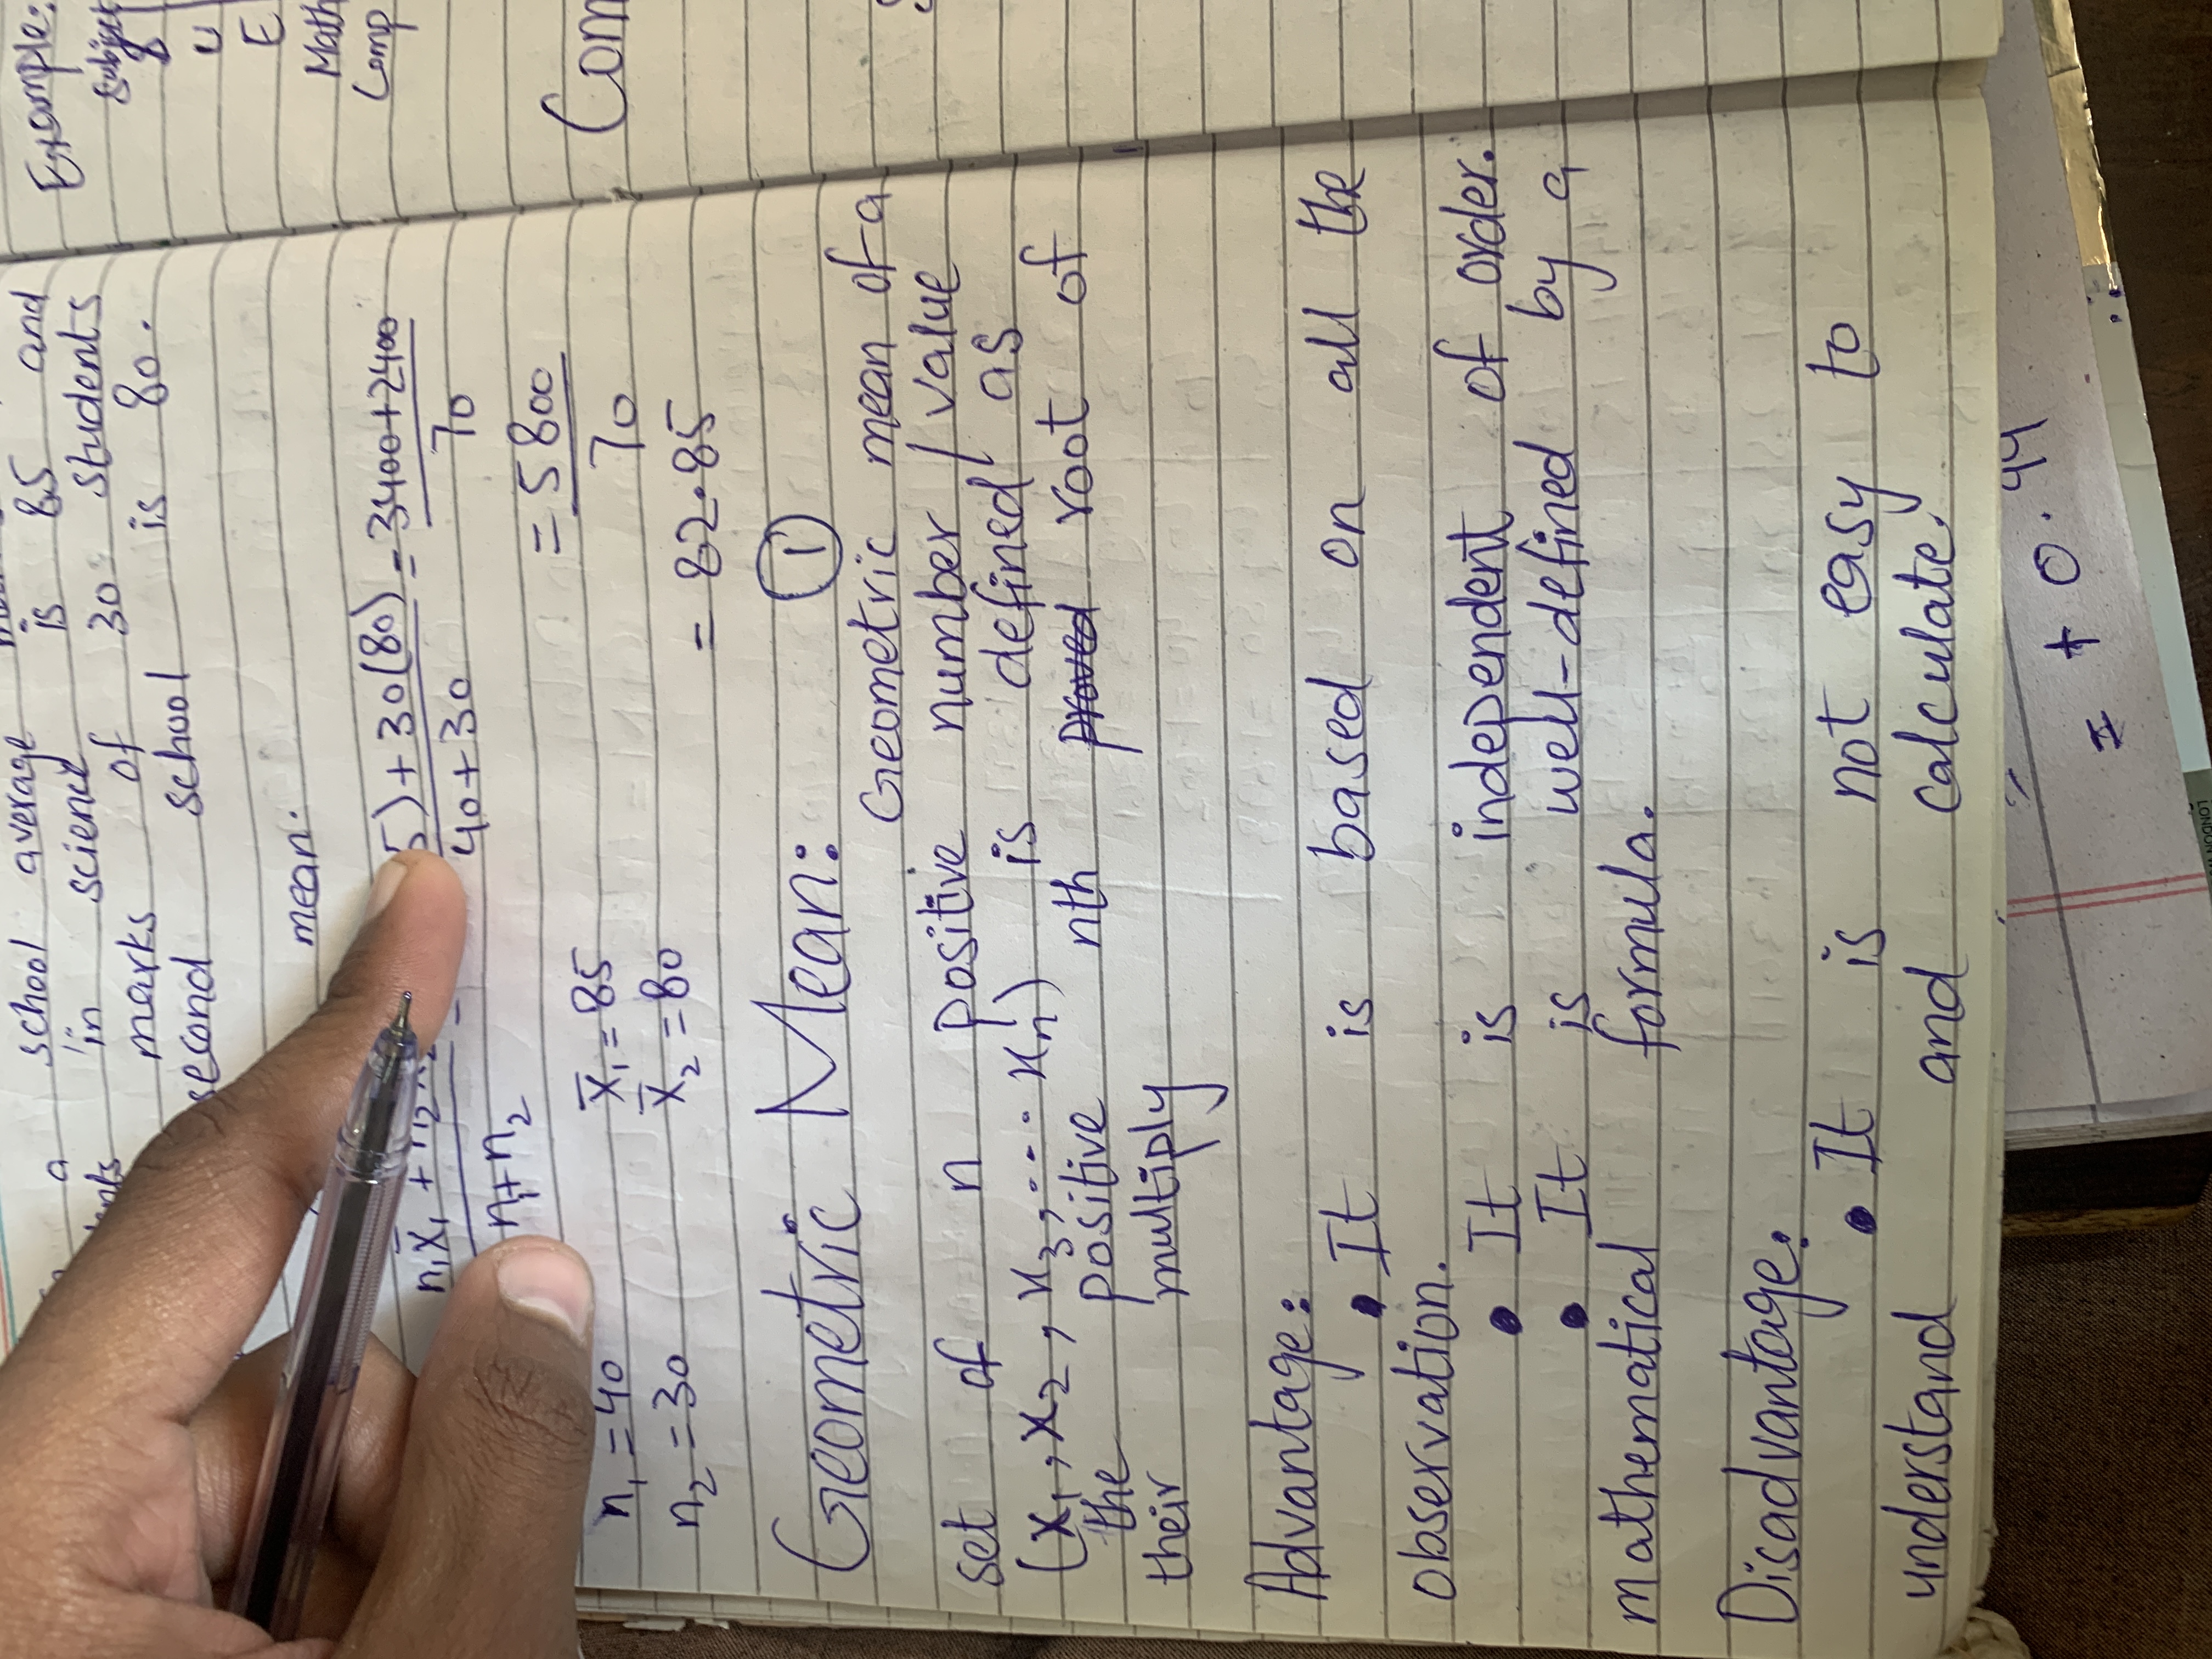 a school average is 85 and
in science
marks of 30 students
second school is 80.
mean.
n₁x̄₁ + n₂x̄₂ / n₁+n₂ = 5) + 30(80) / 40+30 = 3400+2400 / 70
= 5800 / 70
n₁ = 40 x̄₁ = 85
n₂ = 30 x̄₂ = 80
= 82.85
Geometric Mean: ①
Geometric mean of a
set of n positive number / value
(x₁, x₂, x₃, .... xₙ) is defined as
the positive nth proved root of
their multiply
Advantage:
• It is based on all the
observation.
• It is independent of order.
• It is well-defined by a
mathematical formula.
Disadvantage:
• It is not easy to
understand and calculate.
Example:
Subject
U
E
Math
Comp
Com
= + 0.44
LONDON